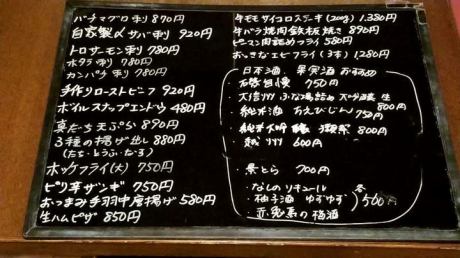 バチマグロ刺り 870円
自家製〆サバ刺り 920円
トロサーモン刺り 780円
ホタテ刺り 780円
カンパチ刺り 780円
手作りローストビーフ 920円
ボイルスナップエンドウ 480円
真だち天ぷら 890円
3種の揚げ出し 880円
(だち・とうふ・なす)
ホッケフライ(大) 750円
ピリ辛ザンギ 750円
おつまみ手羽中唐揚げ 580円
生ハムピザ 850円
牛モモサイコロステーキ(200g) 1,380円
牛バラ焼肉鉄板焼き 890円
ピーマン肉詰めフライ 580円
おっきなエビフライ(3本) 1,280円
日本酒、果実酒おすすめ
自慢 750円
大信州 ふな場詰め 大吟醸 生 800円
純米酒 かえびじん 750円
純米大吟醸 獺祭 800円
越州 600円
景とら 700円
・なしのリキュール
・柚子酒 ゆずゆず
・赤兎馬の梅酒
各500円